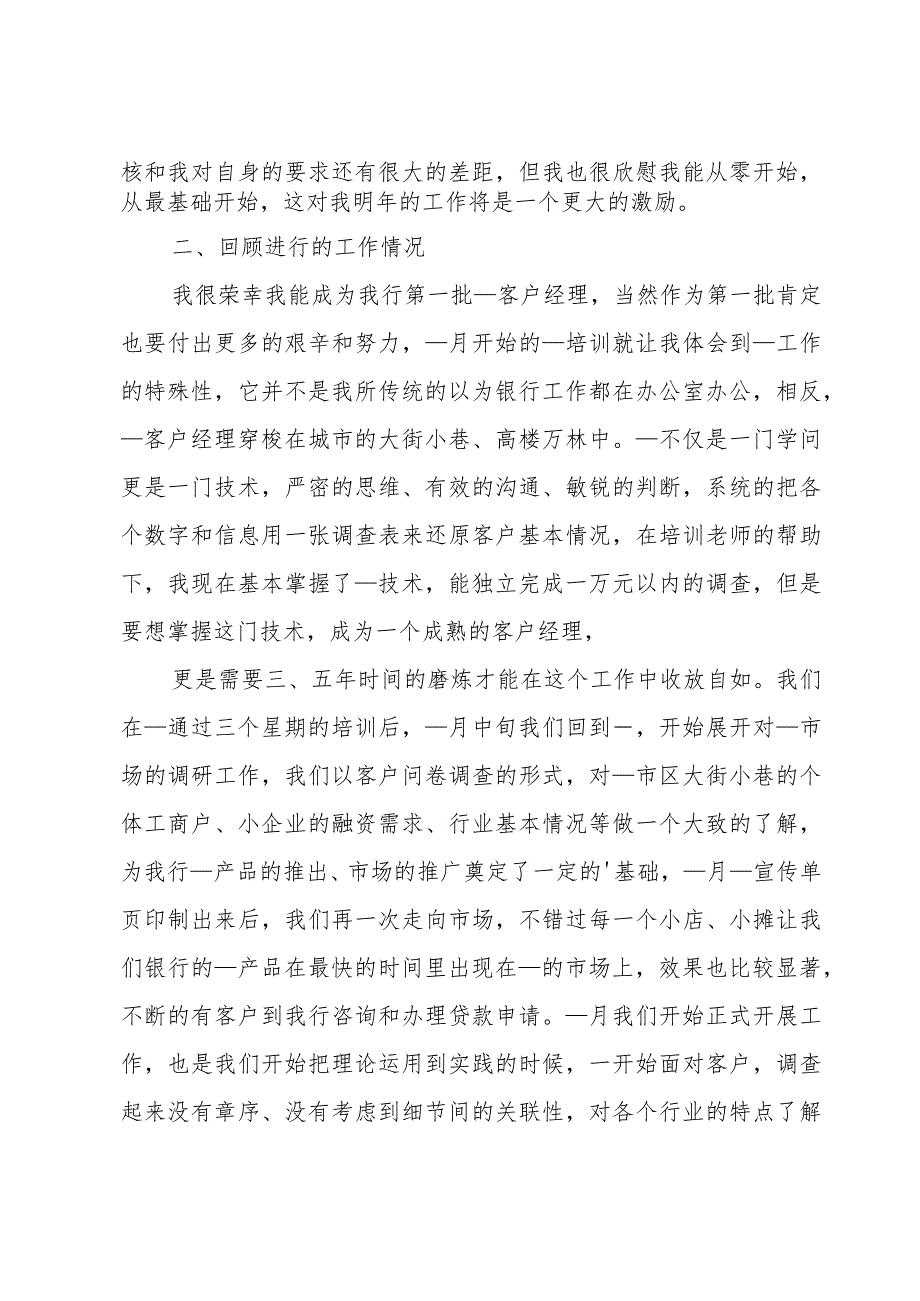 核和我对自身的要求还有很大的差距，但我也很欣慰我能从零开始，
从最基础开始，这对我明年的工作将是一个更大的激励。
二、回顾进行的工作情况
我很荣幸我能成为我行第一批—客户经理，当然作为第一批肯定
也要付出更多的艰辛和努力，—月开始的—培训就让我体会到—工作
的特殊性，它并不是我所传统的以为银行工作都在办公室办公，相反，
—客户经理穿梭在城市的大街小巷、高楼万林中。—不仅是一门学问
更是一门技术，严密的思维、有效的沟通、敏锐的判断，系统的把各
个数字和信息用一张调查表来还原客户基本情况，在培训老师的帮助
下，我现在基本掌握了—技术，能独立完成一万元以内的调查，但是
要想掌握这门技术，成为一个成熟的客户经理，
更是需要三、五年时间的磨炼才能在这个工作中收放自如。我们
在—通过三个星期的培训后，—月中旬我们回到一，开始展开对—市
场的调研工作，我们以客户问卷调查的形式，对—市区大街小巷的个
体工商户、小企业的融资需求、行业基本情况等做一个大致的了解，
为我行—产品的推出、市场的推广奠定了一定的'基础，—月—宣传单
页印制出来后，我们再一次走向市场，不错过每一个小店、小摊让我
们银行的—产品在最快的时间里出现在—的市场上，效果也比较显著，
不断的有客户到我行咨询和办理贷款申请。—月我们开始正式开展工
作，也是我们开始把理论运用到实践的时候，一开始面对客户，调查
起来没有章序、没有考虑到细节间的关联性，对各个行业的特点了解